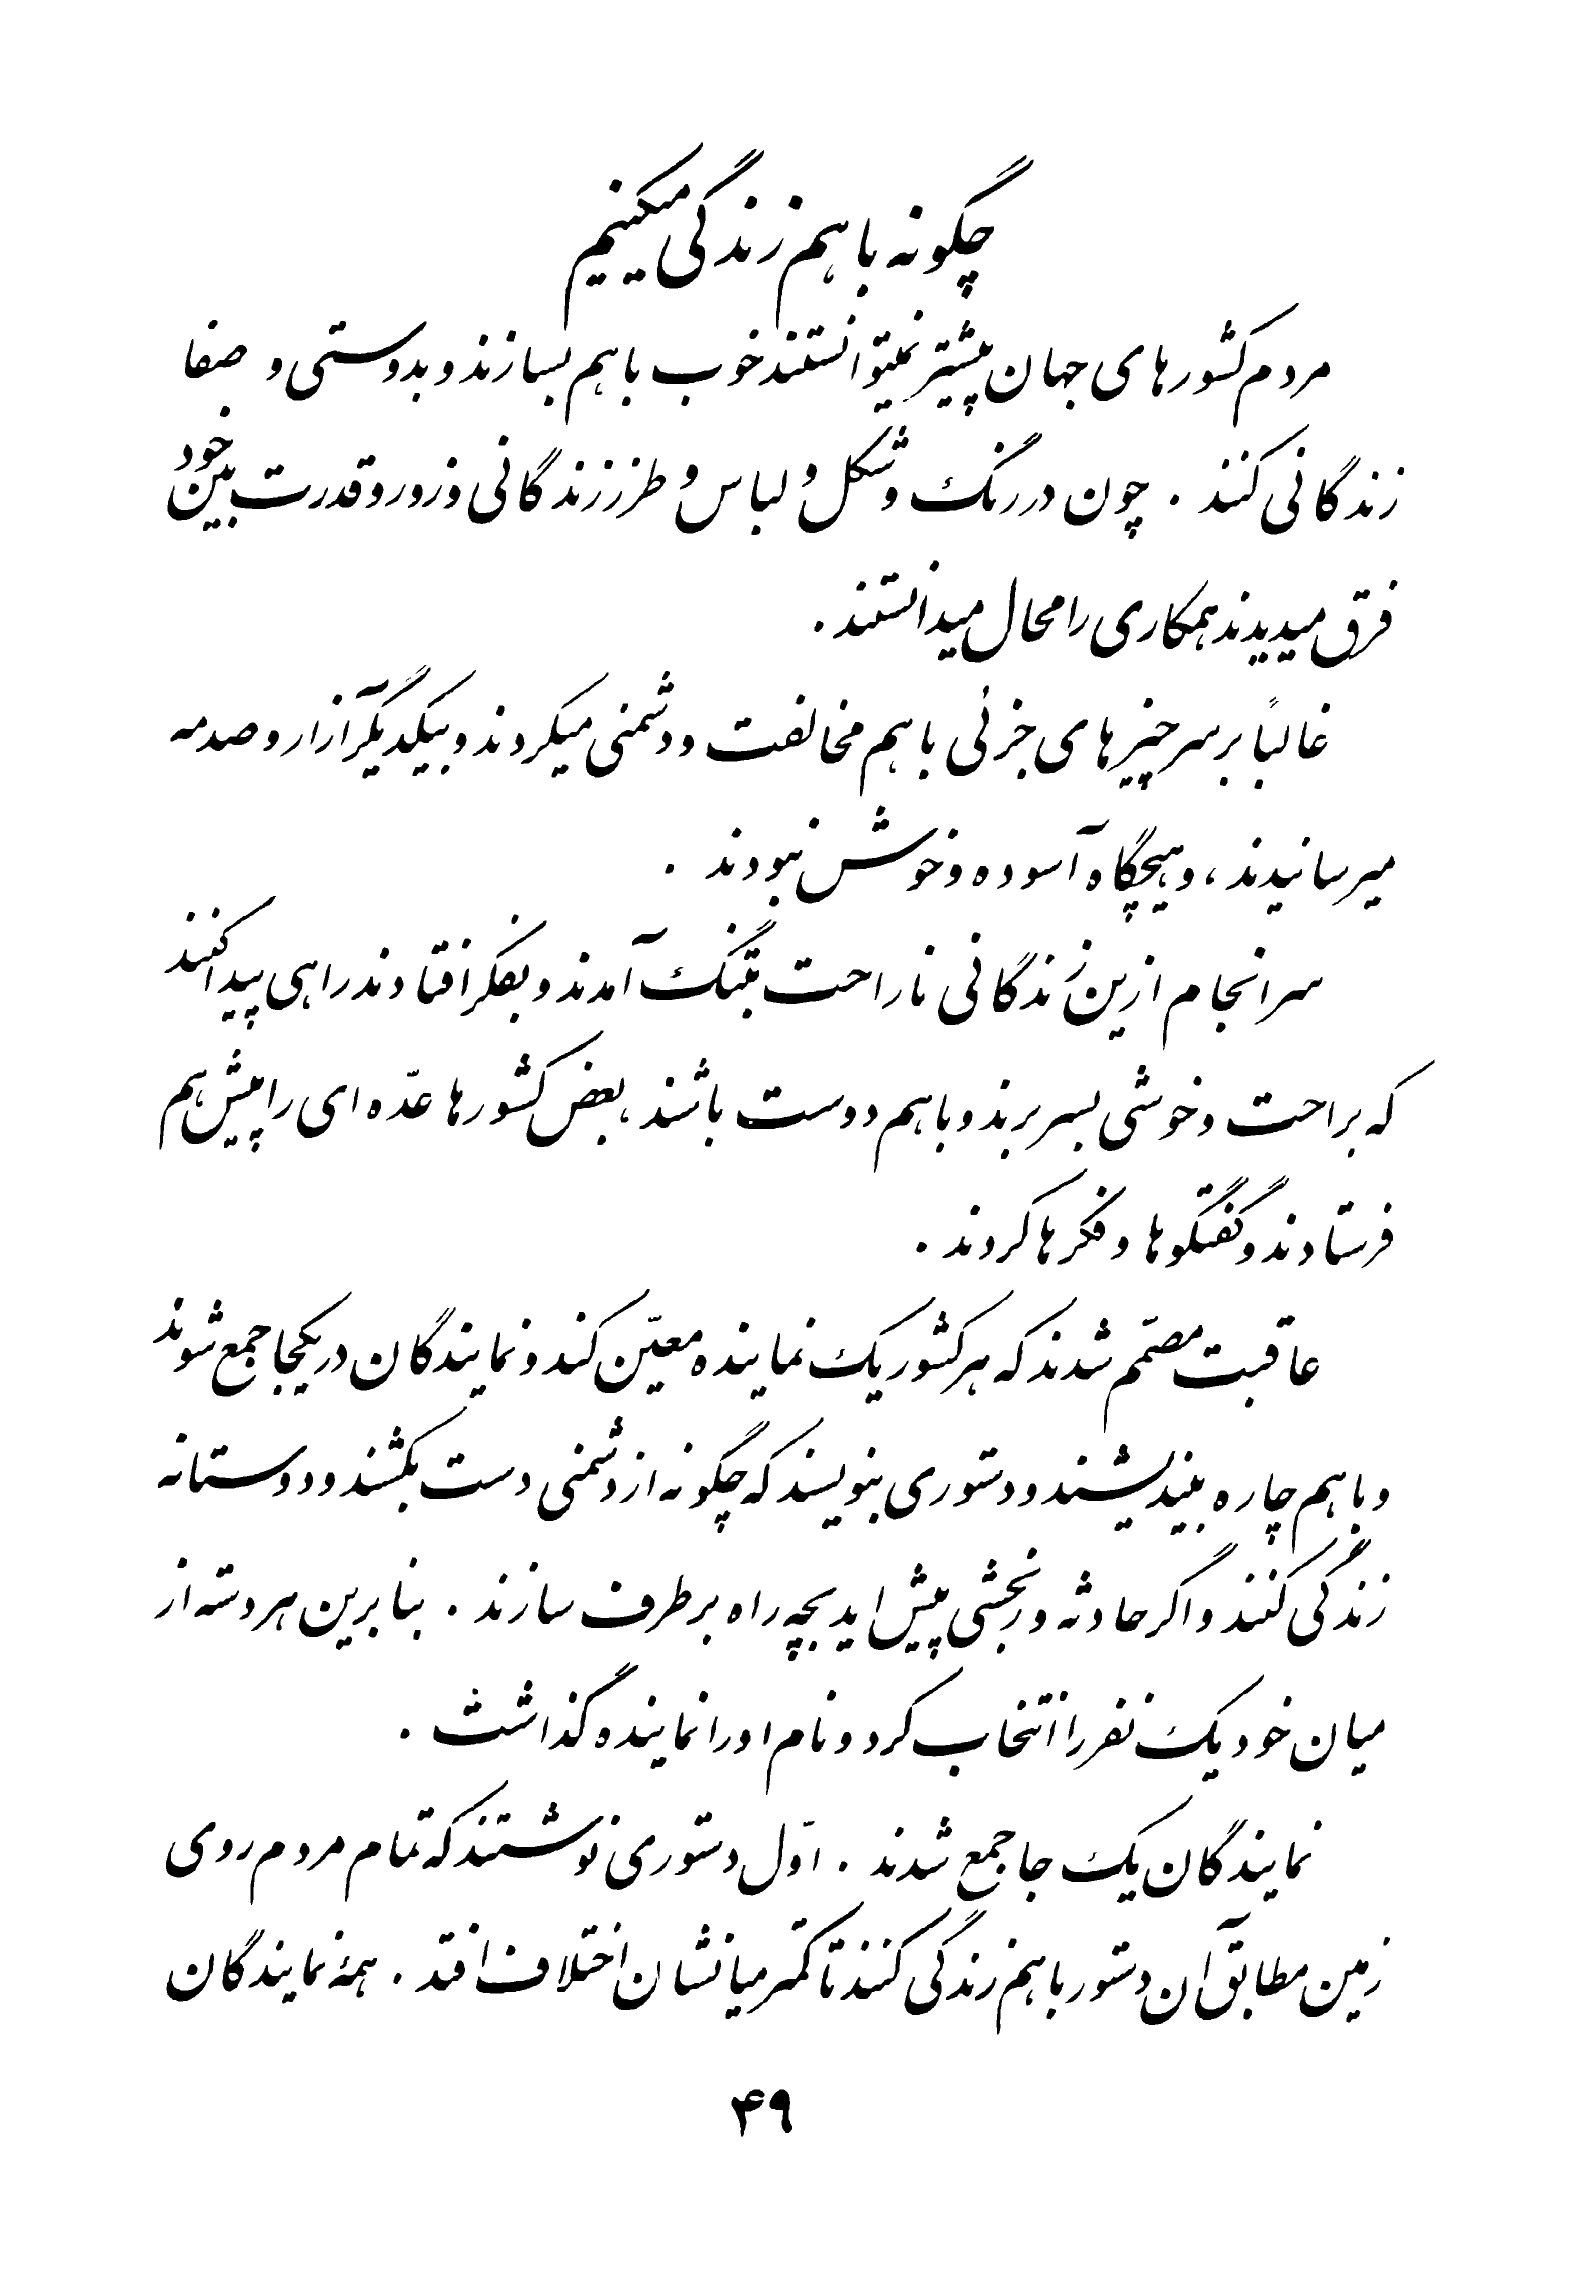 چگونه با هم زندگی میکنیم
مردم کشورهای جهان پیشتر نمیتوانستند خوب با هم بسازند و بدوستی و صفا
زندگانی کنند . چون در رنگ و شکل و لباس و طرز زندگانی و زور و قدرت بین خود
فرق میدیدند همکاری را محال میدانستند .
غالباً بر سر چیزهای جزئی با هم مخالفت و دشمنی میکردند و بیکدیگر آزار و صدمه
میرسانیدند ، و هیچگاه آسوده و خوش نبودند .
سرانجام ازین زندگانی ناراحت بتنگ آمدند و بفکر افتادند راهی پیدا کنند
که براحت و خوشی بسر برند و با هم دوست باشند ، بعض کشورها عدّه ای را پیش هم
فرستادند و گفتگوها و فکرها کردند .
عاقبت مصمّم شدند که هر کشور یک نماینده معیّن کند و نمایندگان در یکجا جمع شوند
و با هم چاره بیندیشند و دستوری بنویسند که چگونه از دشمنی دست بکشند و دوستانه
زندگی کنند و اگر حادثه و رنجشی پیش اید بچه راه برطرف سازند . بنابرین هر دسته از
میان خود یک نفر را انتخاب کرد و نام او را نماینده گذاشت .
نمایندگان یک جا جمع شدند . اوّل دستوری نوشتند که تمام مردم روی
زمین مطابق آن دستور با هم زندگی کنند تا کمتر میانشان اختلاف افتد . همهٔ نمایندگان
۴۹